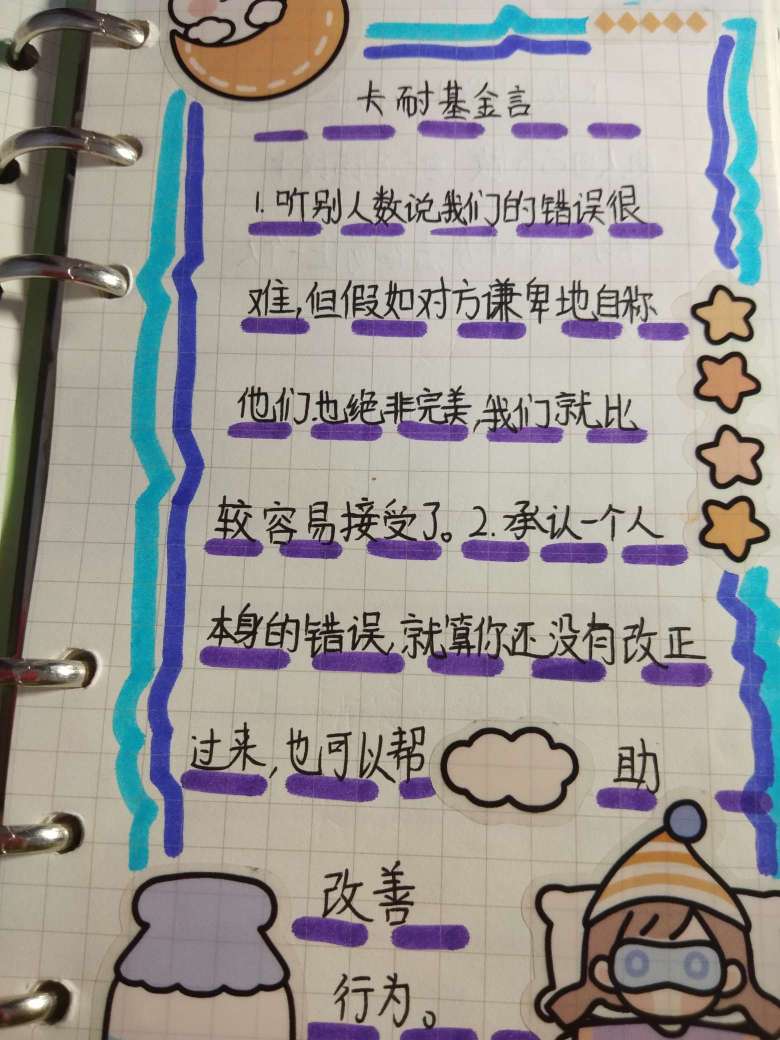 卡耐基金言
1. 听别人数说我们的错误很
难,但假如对方谦卑地自称
他们也绝非完美,我们就比
较容易接受了。2. 承认一个人
本身的错误,就算你还没有改正
过来,也可以帮助
改善
行为。